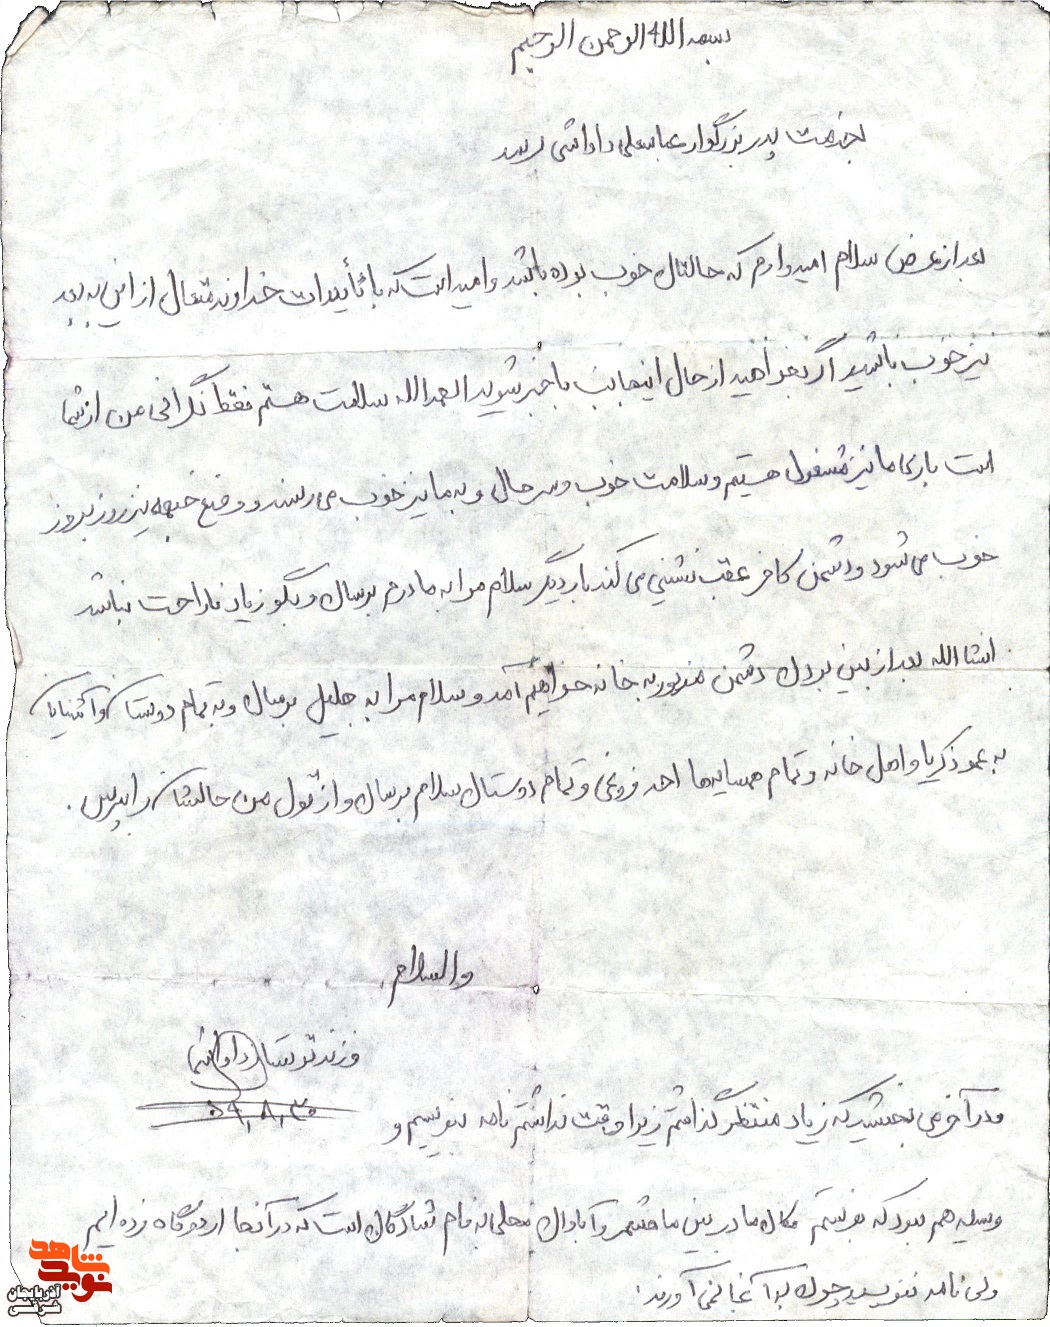 بسمه الله الرحمن الرحیم
بخدمت پدر بزرگوار عباسعلی داداشی برسد
بعد از عرض سلام امیدوارم که حالتان خوب بوده باشد و امید است که با تأییدات خداوند متعال از این به بعد
نیز خوب باشید اگر بخواهید از حال اینجانب باخبر شوید الحمدالله سلامت هستم فقط نگرانی من از شما
است باری ما نیز مشغول هستیم و سلامت خوب و سرحال و به ما نیز خوب می رسند و وضع جبهه نیز روز بروز
خوب می شود و دشمن کافر عقب نشینی می کند بار دیگر سلام مرا به مادرم برسان و بگو زیاد ناراحت نباشد
انشاالله بعد از بین بردن دشمن مزبور به خانه خواهیم آمد و سلام مرا به جلیل برسان و به تمام دوستان و آشنایان
به عمو ذکریا و اهل خانه و تمام همسایه ها احد فروغی و تمام دوستان سلام برسان و از قول من حالشان را بپرس.
والسلام
فرزند تو
۵۹,۸,۳۰
در آخر می بخشید که زیاد منتظر گذاشتم زیرا وقت نداشتم نامه بنویسم و
وسیله هم نبود که بفرستم مکان ما در بین ماهشهر و آبادان محلی به نام شادگان است که در آنجا اردوگاه زده ایم
ولی نامه ننویسید چون به آنجا نمی آورند.
نوید شاهد
آذربایجان
شرقی